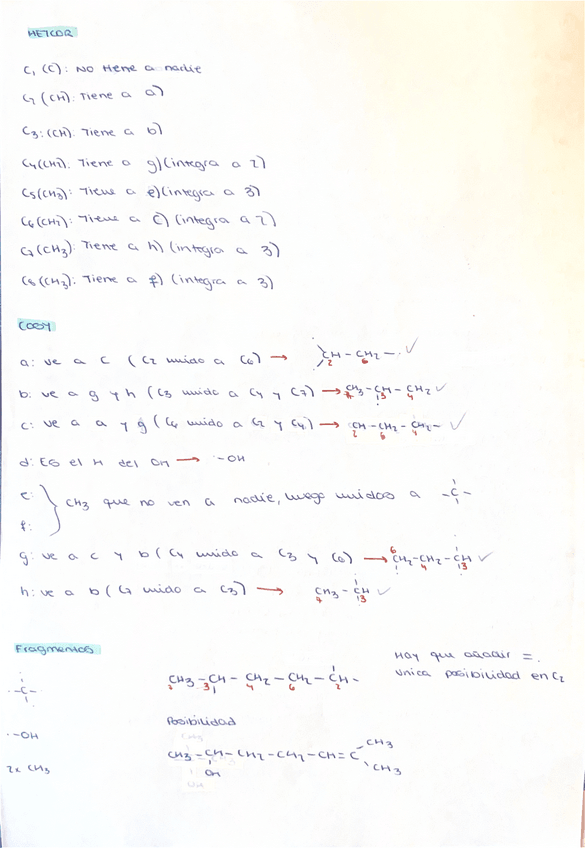 HETCOR
C₁ (C): NO tiene a nadie
C₂ (CH): Tiene a a)
C₃: (CH): Tiene a b)
C₄(CH₂): Tiene a g) (integra a 2)
C₅(CH₃): Tiene a e) (integra a 3)
C₆(CH₂): Tiene a c) (integra a 2)
C₇(CH₃): Tiene a h) (integra a 3)
C₈(CH₃): Tiene a f) (integra a 3)
COSY
a: ve a c (C₂ unido a C₆) → CH - CH₂ - ✓
2 6
b: ve a g y h (C₃ unido a C₄ y C₇) → CH₃ - CH - CH₂ ✓
7 3 4
c: ve a a y g (C₆ unido a C₂ y C₄) → CH - CH₂ - CH₂ - ✓
2 6 4
d: Es el H del OH → -OH
e:
f: } CH₃ que no ven a nadie, luego unidos a -C-
g: ve a c y b (C₄ unido a C₃ y C₆) → CH₂ - CH₂ - CH ✓
6 4 3
h: ve a b (C₇ unido a C₃) → CH₃ - CH ✓
7 3
Fragmentos
-C-
-OH
2x CH₃
CH₃ - CH - CH₂ - CH₂ - CH -
7 3 4 6 2
Hay que añadir =.
Única posibilidad en C₂
Posibilidad
CH₃ - CH - CH₂ - CH₂ - CH = C
CH₃
OH
CH₃